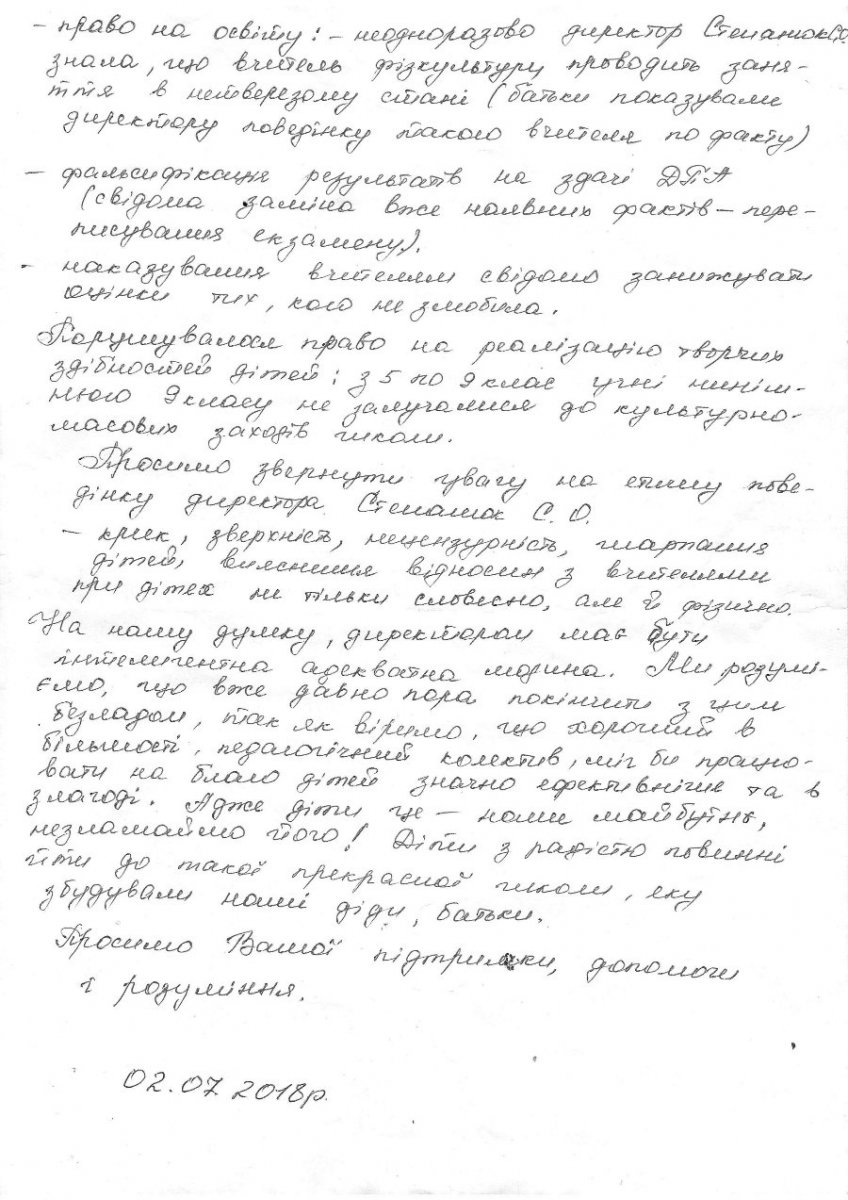 - право на освіту: - неодноразово директор Степанюк С.О.
знала, що вчитель фізкультури проводить заня-
ття в нетверезому стані (батьки показували
директору поведінку такого вчителя по факту)
- фальсифікація результатів на здачі ДПА
(свідома заміна вже наявних фактів - пере-
писування екзамену).
- наказування вчителям свідомо занижувати
оцінки тих, кого не злюбила.
Порушувалося право на реалізацію творчих
здібностей дітей: з 5 по 9 клас учні ниніш-
нього 9 класу не залучалися до культурно-
масових заходів школи.
Просимо звернути увагу на етику пове-
дінку директора Степанюк С.О.
- крик, зверхність, нецензурність, шарпання
дітей, вияснення відносин з вчителями
при дітях не тільки словесно, але й фізично.
На нашу думку, директором має бути
інтелигентна адекватна людина. Ми розумі-
ємо, що вже давно пора покінчити з цим
безладом, так як віримо, що хороший в
більшості, педагогічний колектив, міг би працю-
вати на благо дітей значно ефективніше та в
злагоді. Адже діти це - наше майбутнє,
незламаймо його! Діти з радістю повинні
йти до такої прекрасної школи, яку
збудували наші діди, батьки.
Просимо Вашої підтримки, допомоги
і розуміння.
02.07.2018р.